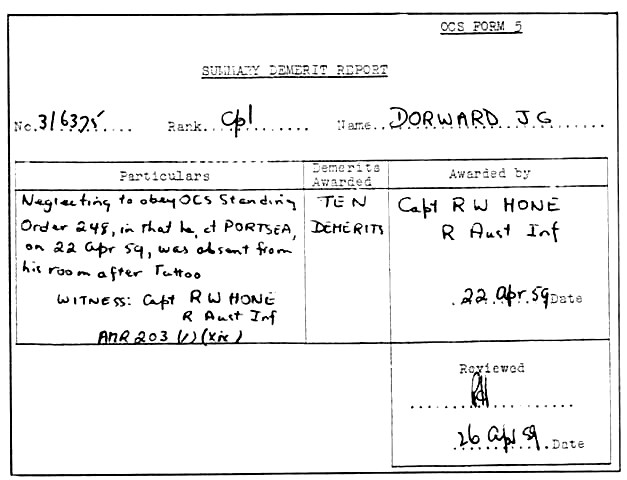 OCS FORM 5
SUMMARY DEMERIT REPORT
No.316375..... Rank..Cpl....... Name..DORWARD JG.......
Particulars Demerits Awarded Awarded by
Neglecting to obey OCS Standing
Order 248, in that he, at PORTSEA,
on 22 Apr 59, was absent from
his room after Tattoo
WITNESS: Capt RW HONE
R Aust Inf
AMR 203 (1)(xix)
TEN
DEMERITS
Capt RW HONE
R Aust Inf
..22 Apr.59 Date
Reviewed
26 Apr 59..Date